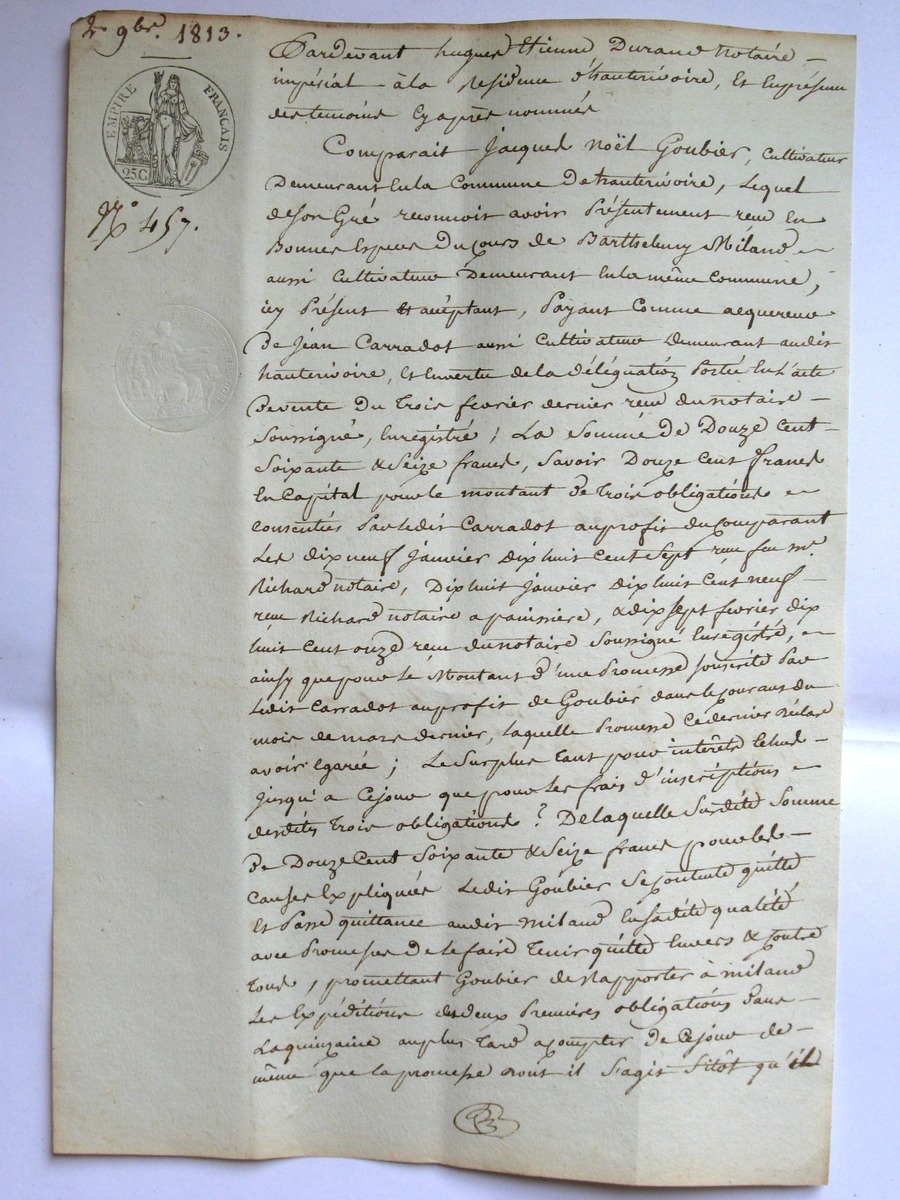 2 9bre. 1813.
EMPIRE FRANÇAIS
25 C.
N° 457.
Pardevant hugues Etienne Durand notaire
impérial à la residence d'hauterivoire, Et En présence
des temoins Cy après nommés
Comparait Jacques Noël Goubier, Cultivateur
Demeurant En la Commune De hauterivoire, Lequel
de son Gré reconnoit avoir Présentement recu En
Bonnes Espèces Du Cours de Barthelemy Miland
aussi Cultivateur Demeurant En la même Commune,
icy Présent Et acceptant, Payant Comme acquereur
De Jean Carradot aussi Cultivateur Demeurant audit
hauterivoire, Et En vertu de la délégation Portée En l'acte
De vente Du Trois fevrier dernier recu du notaire
Soussigné, Enregistré; La Somme De Douze Cent
Soixante & Seize francs, Savoir Douze Cent francs
En Capital pour le montant de Trois obligations
Consenties Par Ledit Carradot au profit du Comparant
Les dix neuf Janvier dix huit Cent Sept recu feu Me.
Richard notaire, Dix huit Janvier dix huit Cent neuf
recu Richard notaire a panissiere, & dix Sept fevrier dix
huit Cent onze recu du notaire Soussigné Enregistré,
ainsy que pour le Montant d'une Promesse souscrite Par
Ledit Carradot au profit de Goubier dans le Courant du
mois de mars dernier, Laquelle Promesse Ce dernier déclare
avoir égarée; Le Surplus Tant pour interêts Echus
Jusqu'a Cejour que pour Les frais d'inscriptions
desdites Trois obligations? De laquelle Susdite Somme
De Douze Cent Soixante & Seize francs pour les
Causes Expliquées Ledit Goubier Se Contente quitte
Et Passe quittance audit miland En sa dite qualité
avec Promesse De le faire Tenir quitte Envers & Contre
Tous, promettant Goubier de Rapporter à miland
Les Expéditions des deux Premières obligations dans
La quinzaine au plus Tard a Compter de Cejour de
même que la promesse dont il S'agit Sitôt qu'il